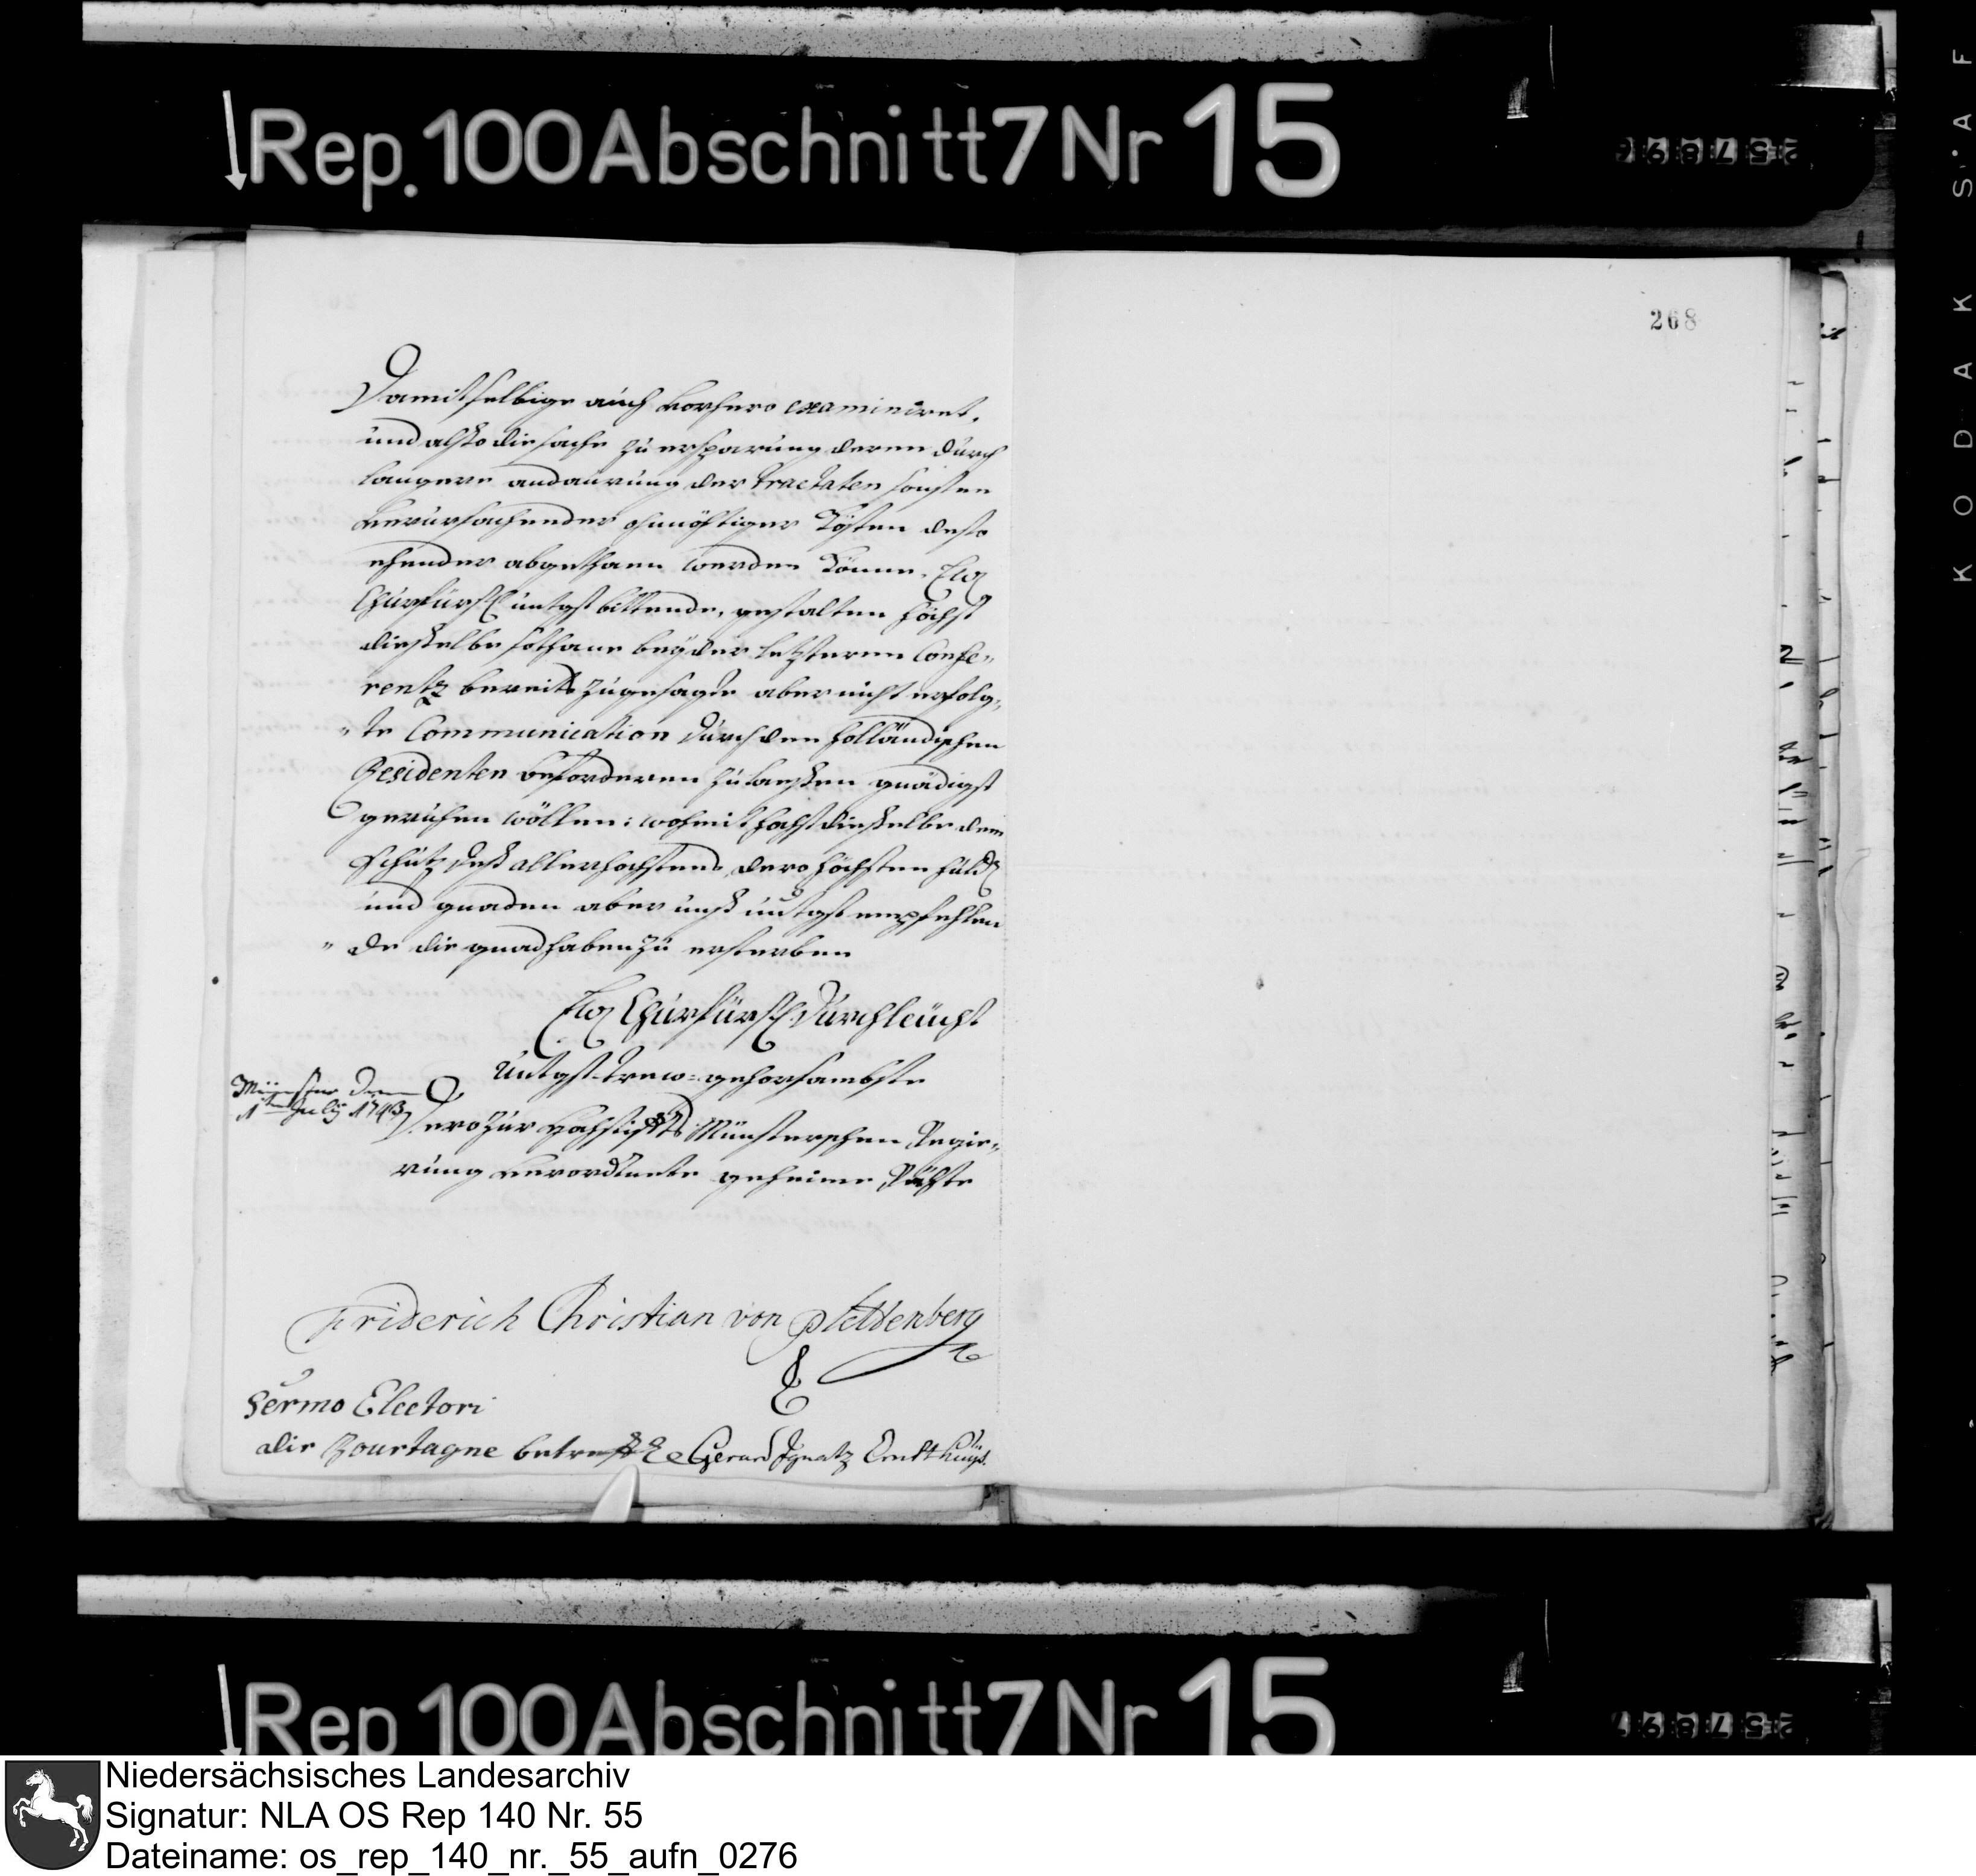 Rep. 100 Abschnitt 7 Nr 15
KODAK S'AF
268
Damit selbige auch vorhero examiniret,
und alßo die sache zu ersparung deren durch
langere andaurung der tractaten sonsten
verursachender ohnnöhtiger Kösten desto
ehender abgethaen werden Könne, Ew.
Churfürstl. untgst bittende, gestalten höchst
dießelbe sothane bey der letzteren Confe„
rentz bereits zugesagte aber nicht erfolg„
„te Communication durch den holländischen
Residenten beforderen zu laeßen gnädigst
geruhen wöllen: wohmit höchst dießelbe dem
Schutz deß allerhöchsten, dero höchsten huld
und gnaden aber unß untgst empfehlen
„de die gnad haben zu ersterben
Ew. Churfürstl. Durchleücht
untgst-trew-gehorsambste
Münster den
1ten July 1743
Dero zur Münsterschen Regie„
rung verordnete geheime Rähte
Friderich Christian von Plettenberg
Sermo Electori
die Bourtagne betreff
Gerard Ignatz
Rep 100 Abschnitt 7 Nr 15
Niedersächsisches Landesarchiv
Signatur: NLA OS Rep 140 Nr. 55
Dateiname: os_rep_140_nr._55_aufn_0276